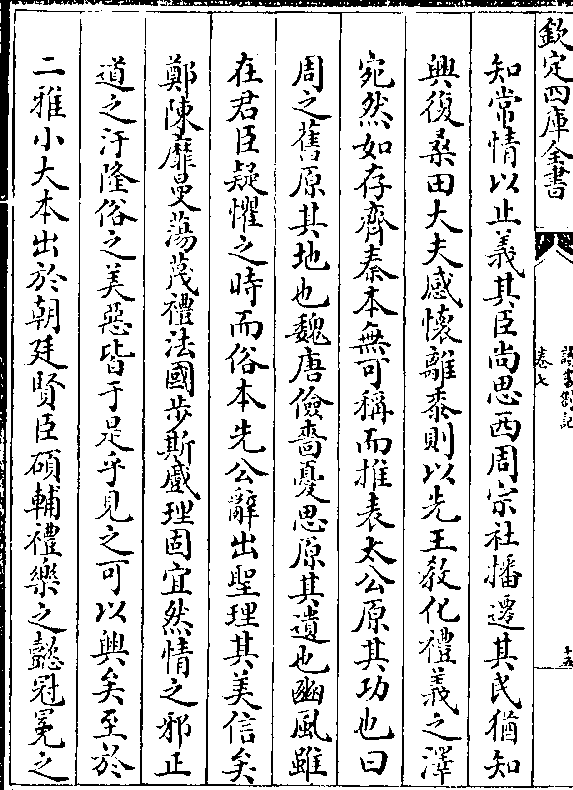 欽定四庫全書
讀書劄記
卷七
十五
知常情以止義其臣尚思西周宗社播遷其民猶知
興復桑田大夫感懷離黍則以先王教化禮義之澤
宛然如存齊秦本無可稱而推表太公原其功也曰
周之舊原其地也魏唐儉嗇憂思原其遺也豳風雖
在君臣疑懼之時而俗本先公辭出聖理其美信矣
鄭陳靡曼蕩蔑禮法國步斯蹙理固宜然情之邪正
道之汙隆俗之美惡皆于是乎見之可以興矣至於
二雅小大本出於朝廷賢臣碩輔禮樂之懿冠冕之